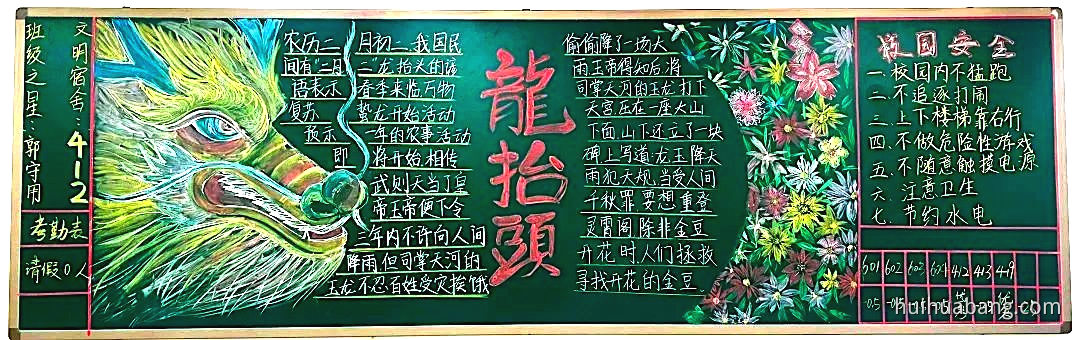 文明宿舍:412
班级之星:郭守用
考勤表
请假0人
农历二 月初二,我国民
间有"二月 二"龙抬头的谚
语表示 春季来临万物
复苏 蛰龙开始活动
预示 一年的农事活动
即 将开始.相传
武则天当了皇
帝玉帝便下令
三年内不许向人间
降雨但司掌天河的
玉龙不忍百姓受灾挨饿
龍抬頭
偷偷降了一场大
雨玉帝得知后.将
司掌天河的玉龙打下
天宫压在一座大山
下面.山下还立了一块
碑上写道.龙王降天
雨犯天规.当受人间
千秋罪.要想重登
灵霄阁.除非金豆
开花时人们拯救
寻找开花的金豆
校园安全
一.校园内不猛跑
二.不追逐打闹
三.上下楼梯靠右行
四.不做危险性游戏
五.不随意触摸电源
六.注意卫生
七.节约水电
601 602 603 604 412 413 419
huihuabang.com